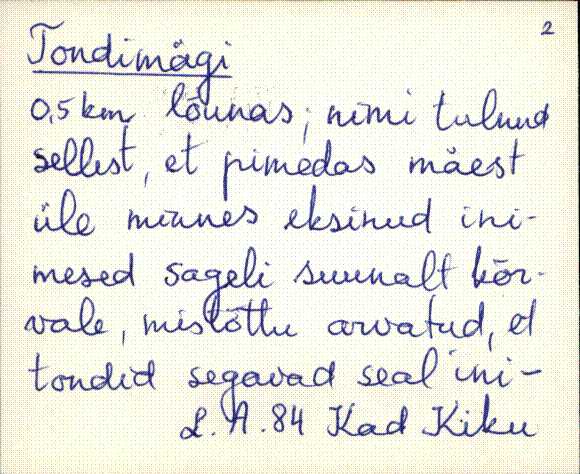 2
Tondimägi
0,5 km lõunas; nimi tulnud
sellest, et pimedas mäest
üle minnes eksinud ini-
mesed sageli suunalt kõr-
vale, mistõttu arvatud, et
tondid segavad seal ini-
L. A. 84 Kad Kiku